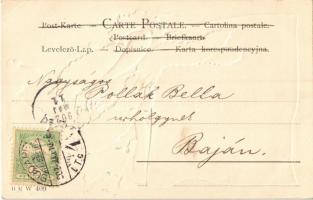 Post-Karte. — CARTE POSTALE. — Cartolina postale.
Postcard. — Briefkaart.
Levelező-Lap. — Dopisnice. — Karta korespondencyjna.
Nagyságos
Pollák Bella
úrhölgynek
Baján.